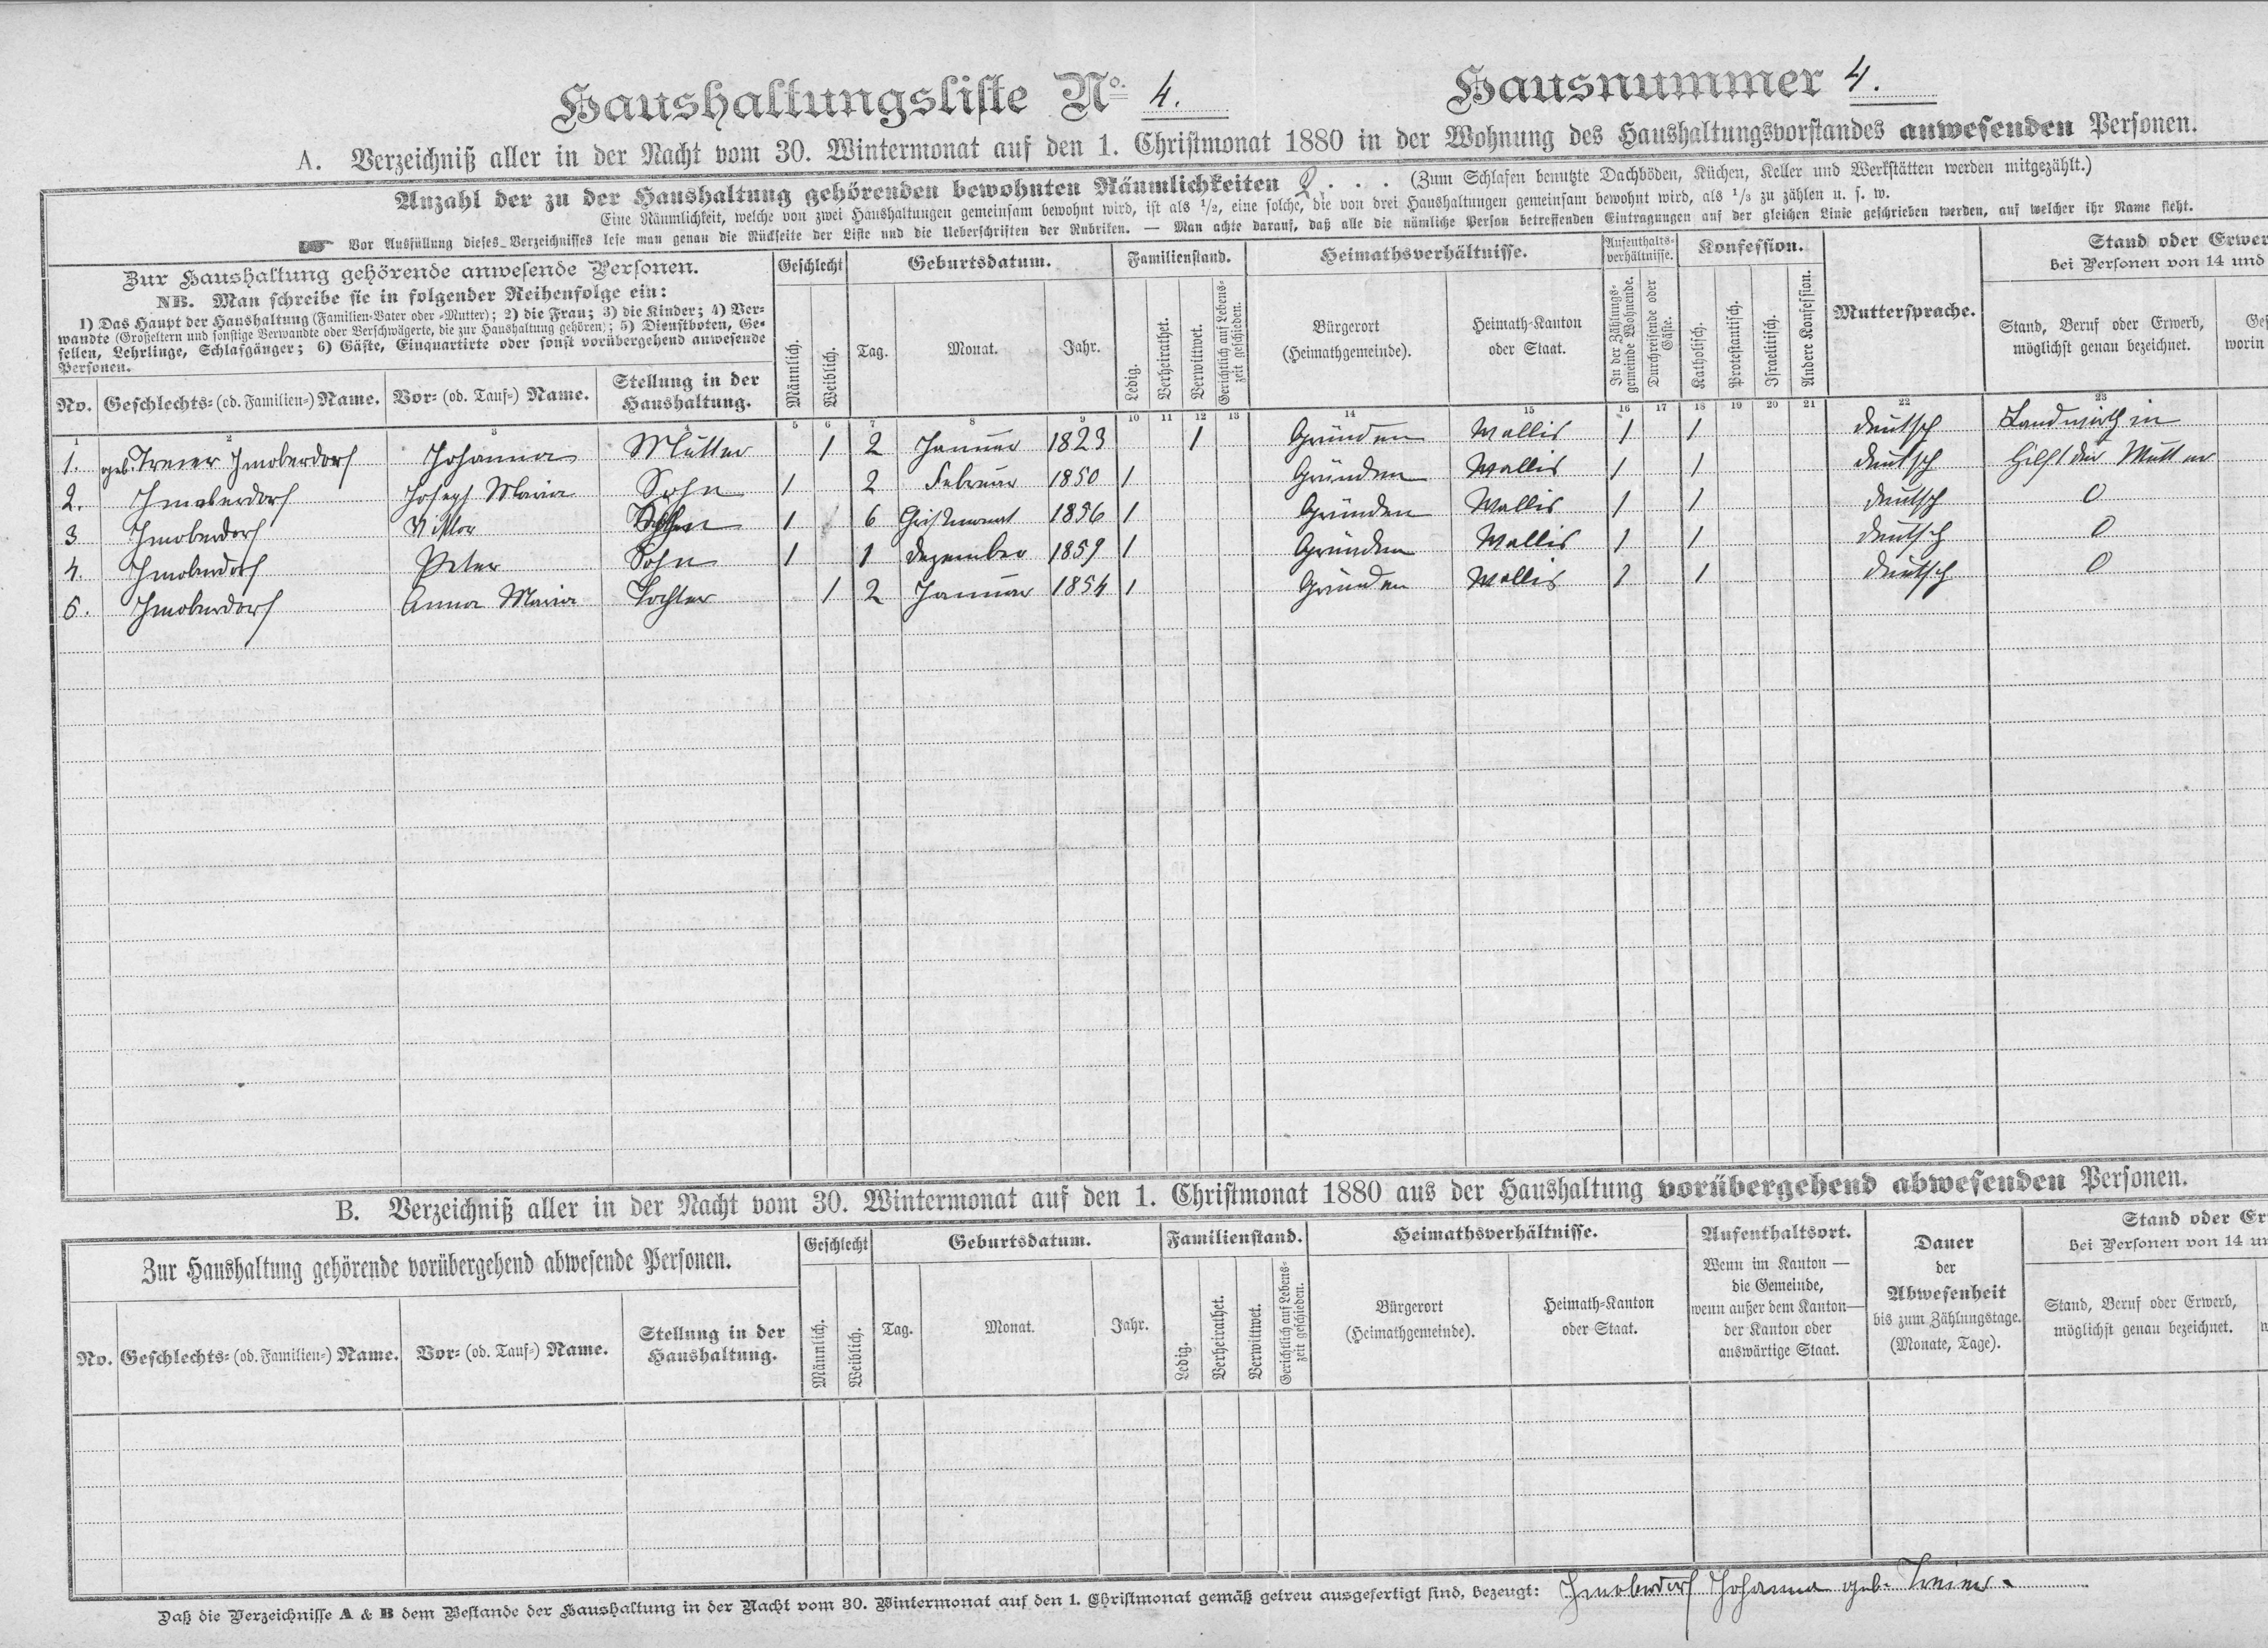 Haushaltungsliste No. 4. Hausnummer 4.
A. Verzeichniß aller in der Nacht vom 30. Wintermonat auf den 1. Christmonat 1880 in der Wohnung des Haushaltungsvorstandes anwesenden Personen.
Anzahl der zu der Haushaltung gehörenden bewohnten Räumlichkeiten 2. . . (Zum Schlafen benutzte Dachböden, Küchen, Keller und Werkstätten werden mitgezählt.)
Eine Räumlichkeit, welche von zwei Haushaltungen gemeinsam bewohnt wird, ist als 1/2, eine solche, die von drei Haushaltungen gemeinsam bewohnt wird, als 1/3 zu zählen u. s. w.
☞ Vor Ausfüllung dieses Verzeichnisses lese man genau die Rückseite der Liste und die Ueberschriften der Rubriken. — Man achte darauf, daß alle die nämliche Person betreffenden Eintragungen auf der gleichen Linie geschrieben werden, auf welcher ihr Name steht.
Zur Haushaltung gehörende anwesende Personen.
NB. Man schreibe sie in folgender Reihenfolge ein:
1) Das Haupt der Haushaltung (Familien-Vater oder -Mutter); 2) die Frau; 3) die Kinder; 4) Ver-
wandte (Großeltern und sonstige Verwandte oder Verschwägerte, die zur Haushaltung gehören); 5) Dienstboten, Ge-
sellen, Lehrlinge, Schlafgänger; 6) Gäste, Einquartirte oder sonst vorübergehend anwesende
Personen.
No. Geschlechts- (od. Familien-) Name. Vor- (od. Tauf-) Name. Stellung in der
Haushaltung.
Geschlecht
Männlich. Weiblich.
Geburtsdatum.
Tag. Monat. Jahr.
Familienstand.
Ledig. Verheirathet. Verwittwet. Gerichtlich auf Lebens-
zeit geschieden.
Heimathsverhältnisse.
Bürgerort
(Heimathgemeinde).
Heimath-Kanton
oder Staat.
Aufenthalts-
verhältnisse.
In der Zählungs-
gemeinde Wohnende.
Durchreisende oder
Gäste.
Konfession.
Katholisch. Protestantisch. Israelitisch. Andere Konfession.
Muttersprache.
Stand oder Erwer
bei Personen von 14 und
Stand, Beruf oder Erwerb,
möglichst genau bezeichnet.
worin
1 2 3 4 5 6 7 8 9 10 11 12 13 14 15 16 17 18 19 20 21 22 23
1. geb. Treier Imoberdorf Johanna Mutter 1 2 Januar 1823 1 Gründen Wallis 1 1 deutsch Landwirthin
2. Imoberdorf Joseph Maria Sohn 1 2 Februar 1850 1 Gründen Wallis 1 1 deutsch Hilft der Mutter
3 Imoberdorf Viktor Sohn 1 6 Christmonat 1856 1 Gründen Wallis 1 1 deutsch 0
4. Imoberdorf Peter Sohn 1 1 Dezember 1859 1 Gründen Wallis 1 1 deutsch 0
5. Imoberdorf Anna Maria Tochter 1 2 Januar 1854 1 Gründen Wallis 1 1 deutsch 0
B. Verzeichniß aller in der Nacht vom 30. Wintermonat auf den 1. Christmonat 1880 aus der Haushaltung vorübergehend abwesenden Personen.
Zur Haushaltung gehörende vorübergehend abwesende Personen.
No. Geschlechts- (od. Familien-) Name. Vor- (od. Tauf-) Name. Stellung in der
Haushaltung.
Geschlecht
Männlich. Weiblich.
Geburtsdatum.
Tag. Monat. Jahr.
Familienstand.
Ledig. Verheirathet. Verwittwet. Gerichtlich auf Lebens-
zeit geschieden.
Heimathsverhältnisse.
Bürgerort
(Heimathgemeinde).
Heimath-Kanton
oder Staat.
Aufenthaltsort.
Wenn im Kanton —
die Gemeinde,
wenn außer dem Kanton—
der Kanton oder
auswärtige Staat.
Dauer
der
Abwesenheit
bis zum Zählungstage.
(Monate, Tage).
Stand oder Er
bei Personen von 14 un
Stand, Beruf oder Erwerb,
möglichst genau bezeichnet.
Daß die Verzeichnisse A & B dem Bestande der Haushaltung in der Nacht vom 30. Wintermonat auf den 1. Christmonat gemäß getreu ausgefertigt sind, bezeugt: Imoberdorf Johanna geb. Treier.